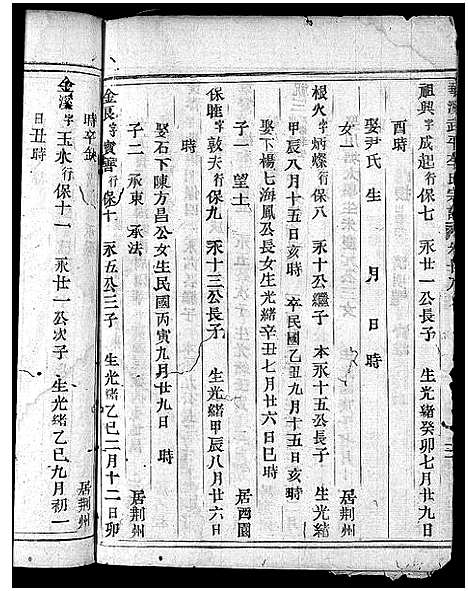 祖興字成起行保七 永廿一公長子 生光緒癸卯七月廿九日
酉時
娶尹氏生 月 日時
女一 居荆州
根火字炳燦行保八 永十公繼子 本永十五公長子 生光緒
甲辰八月十五日亥時 卒民國乙丑九月十五日亥時
娶下楊七海鳳公長女生光緒辛丑七月廿六日巳時
子一 望土 居西園
保曬字敦夫行保九 永十三公長子 生光緒甲辰八月廿六日
時
娶石下陳方昌公女生民國丙寅九月廿九日 時
子二 永東 永法 居荆州
金長字實善行保十 永五公三子 生光緒乙巳二月十二日卯
時辛缺 居荆州
金溪字玉水行保十一 永廿一公次子 生光緒乙巳九月初一
日丑時